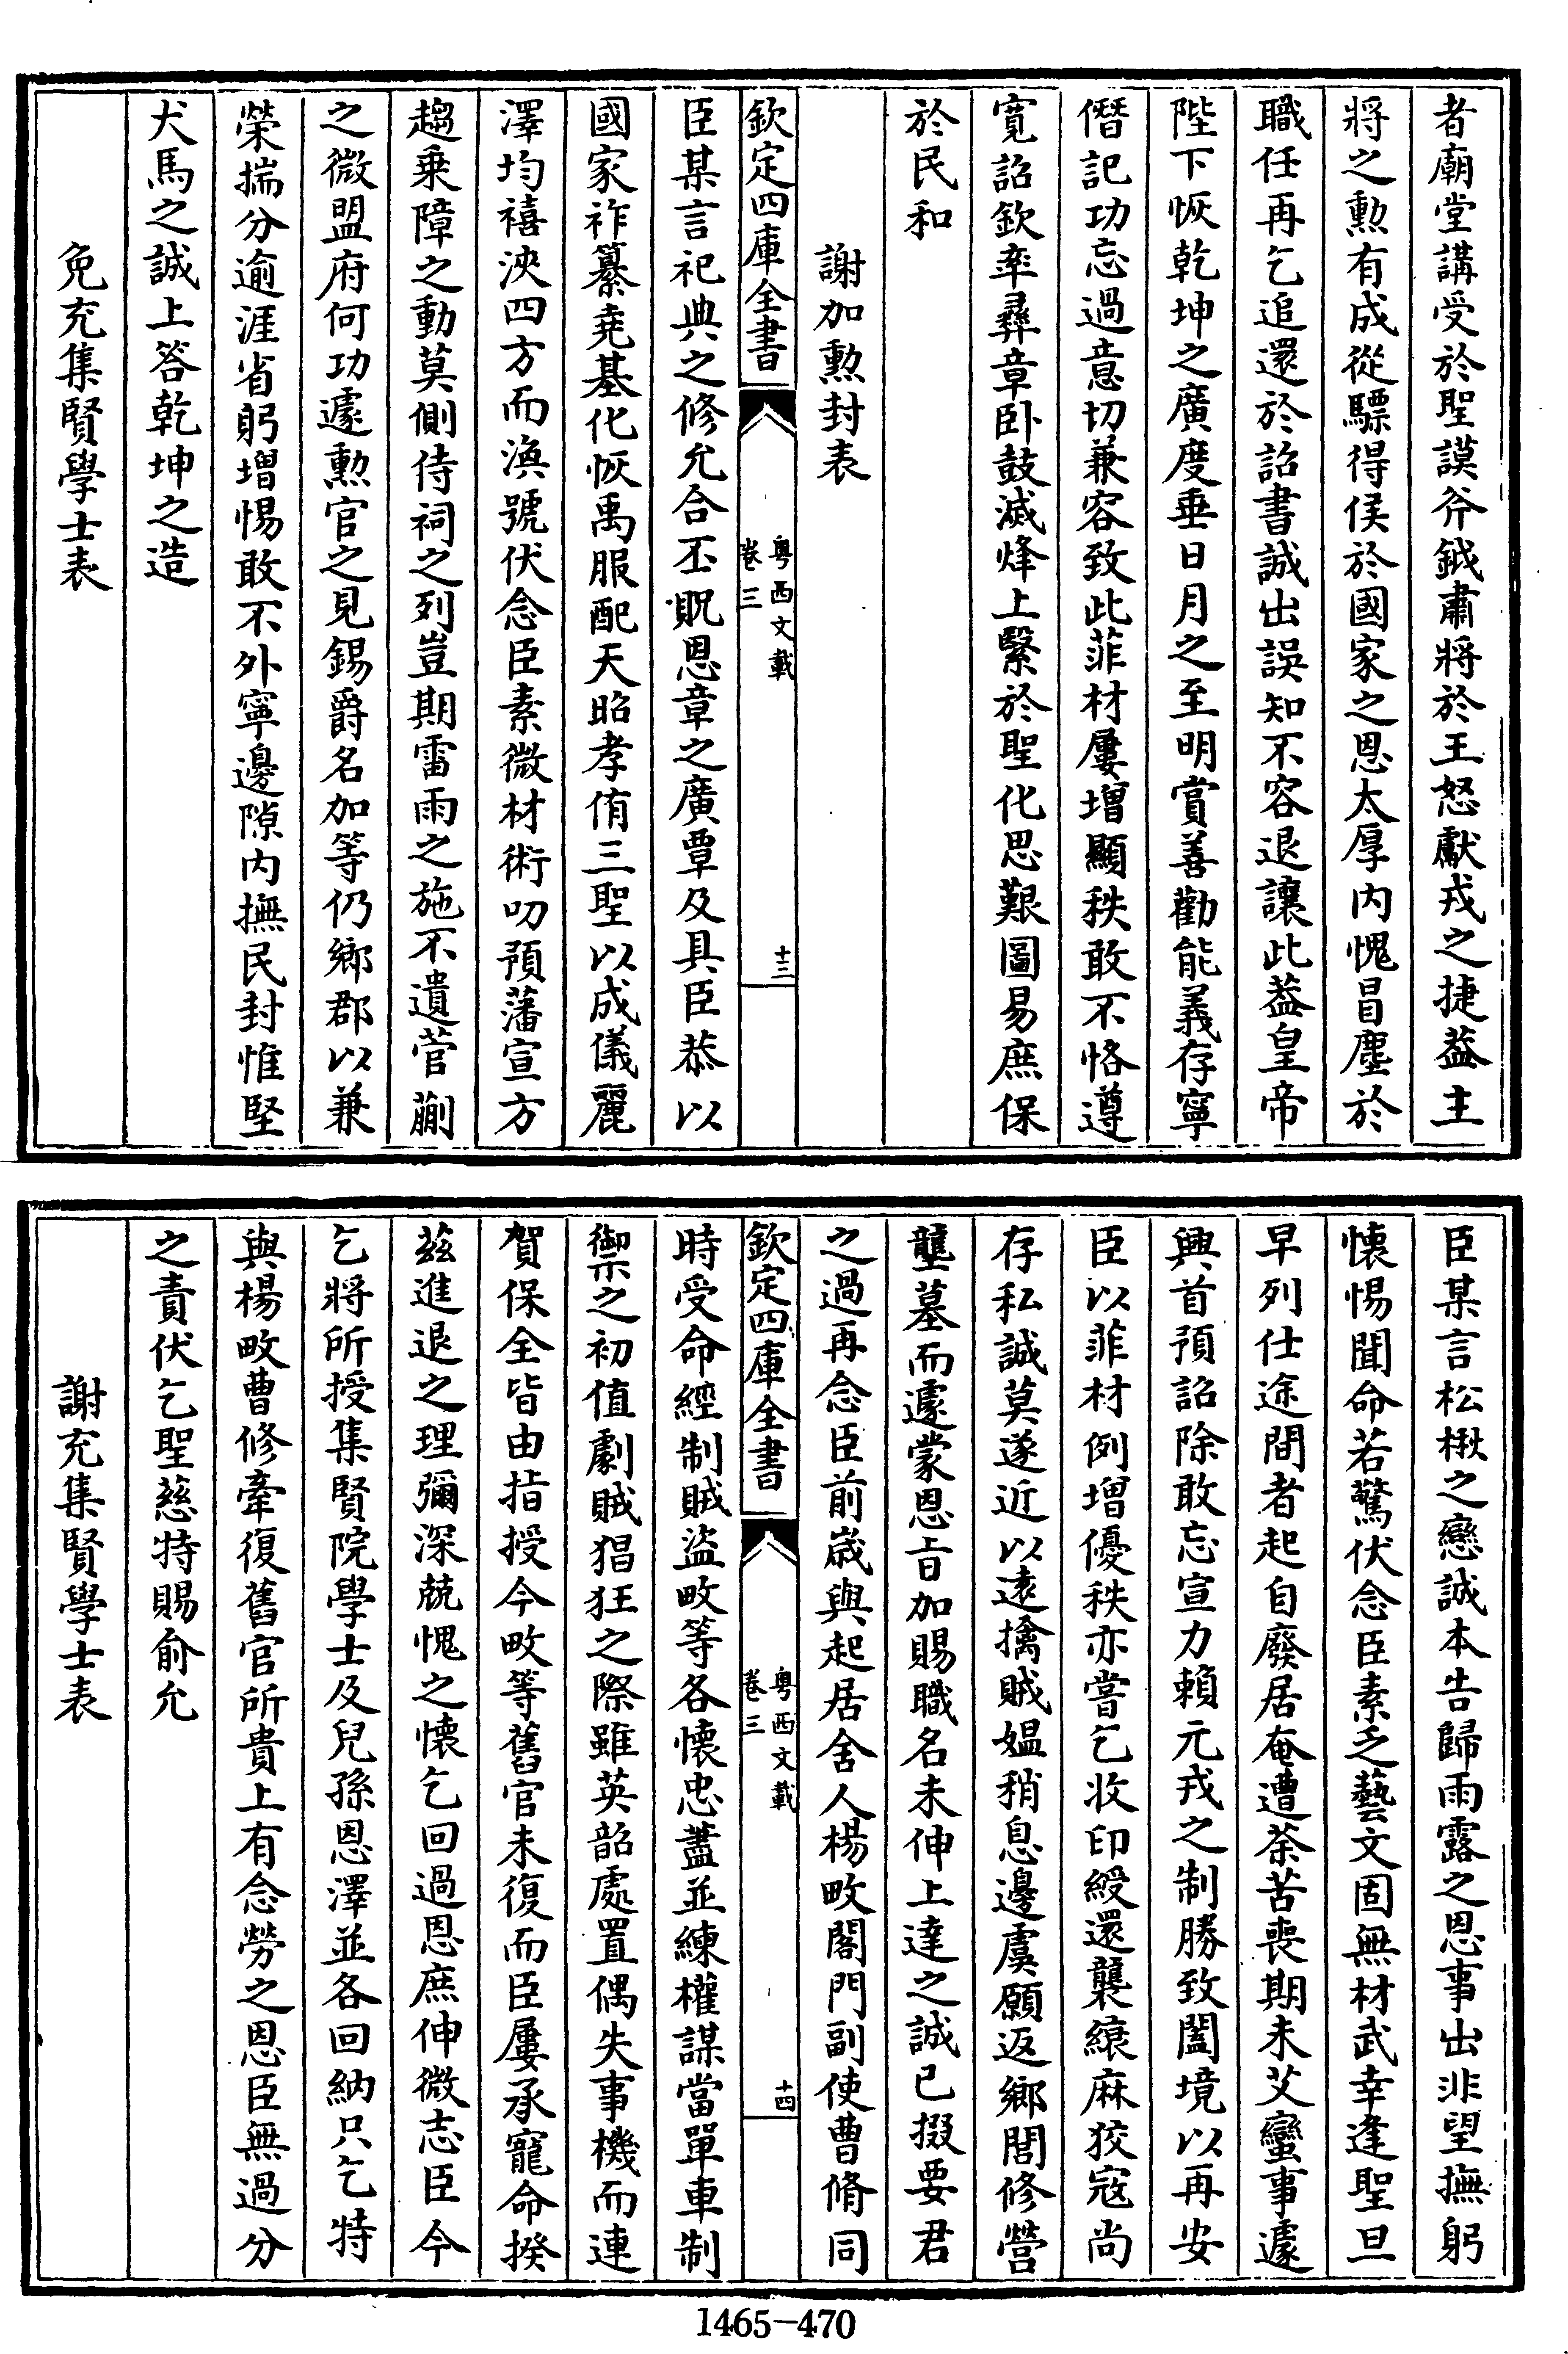 者廟堂講受於聖謨斧鉞肅將於王怒獻戎之捷葢主
將之勲有成從驃得侯於國家之恩太厚内愧冒塵於
職任再乞追還於詔書誠出誤知不容退讓此葢皇帝
陛下恢乾坤之廣度垂日月之至明賞善勸能義存寧
僭記功忘過意切兼容致此菲材屢增顯秩敢不恪遵
寛詔欽率彞章卧鼓滅烽上緊於聖化思艱圖易庶保
於民和
謝加勲封表
欽定四庫全書
粤西文載
卷三
十三
臣某言祀典之修允合丕貺恩章之廣覃及具臣恭以
國家祚纂堯基化恢禹服配天昭孝侑三聖以成儀麗
澤均禧浹四方而渙號伏念臣素微材術叨預藩宣方
趨乗障之動莫側侍祠之列豈期雷雨之施不遺菅蒯
之微盟府何功遽勲官之見錫爵名加等仍鄉郡以兼
榮揣分逾涯省躬增惕敢不外寧邊隙内撫民封惟堅
犬馬之誠上答乾坤之造
免充集賢學士表
臣某言松楸之戀誠本告歸雨露之恩事出非望撫躬
懐惕聞命若驚伏念臣素乏藝文固無材武幸逢聖旦
早列仕途間者起自廢居奄遭荼苦喪期未艾蠻事遽
興首預詔除敢忘宣力賴元戎之制勝致闔境以再安
臣以菲材例增優秩亦嘗乞收印綬還襲縗麻狡寇尚
存私誠莫遂近以遠擒賊媪稍息邊虞願返鄉閭修營
壟墓而遽蒙恩㫖加賜職名未伸上達之誠已掇要君
之過再念臣前歳與起居舍人楊畋閤門副使曹脩同
欽定四庫全書
粤西文載
卷三
十四
時受命經制賊盜畋等各懐忠藎並練權謀當單車制
禦之初值劇賊猖狂之際雖英韶處置偶失事機而連
賀保全皆由指授今畋等舊官未復而臣屢承寵命揆
茲進退之理彌深兢愧之懐乞回過恩庶伸微志臣今
乞將所授集賢院學士及兒孫恩澤並各回納只乞特
與楊畋曹修牽復舊官所貴上有念勞之恩臣無過分
之責伏乞聖慈特賜俞允
謝充集賢學士表
1465-470